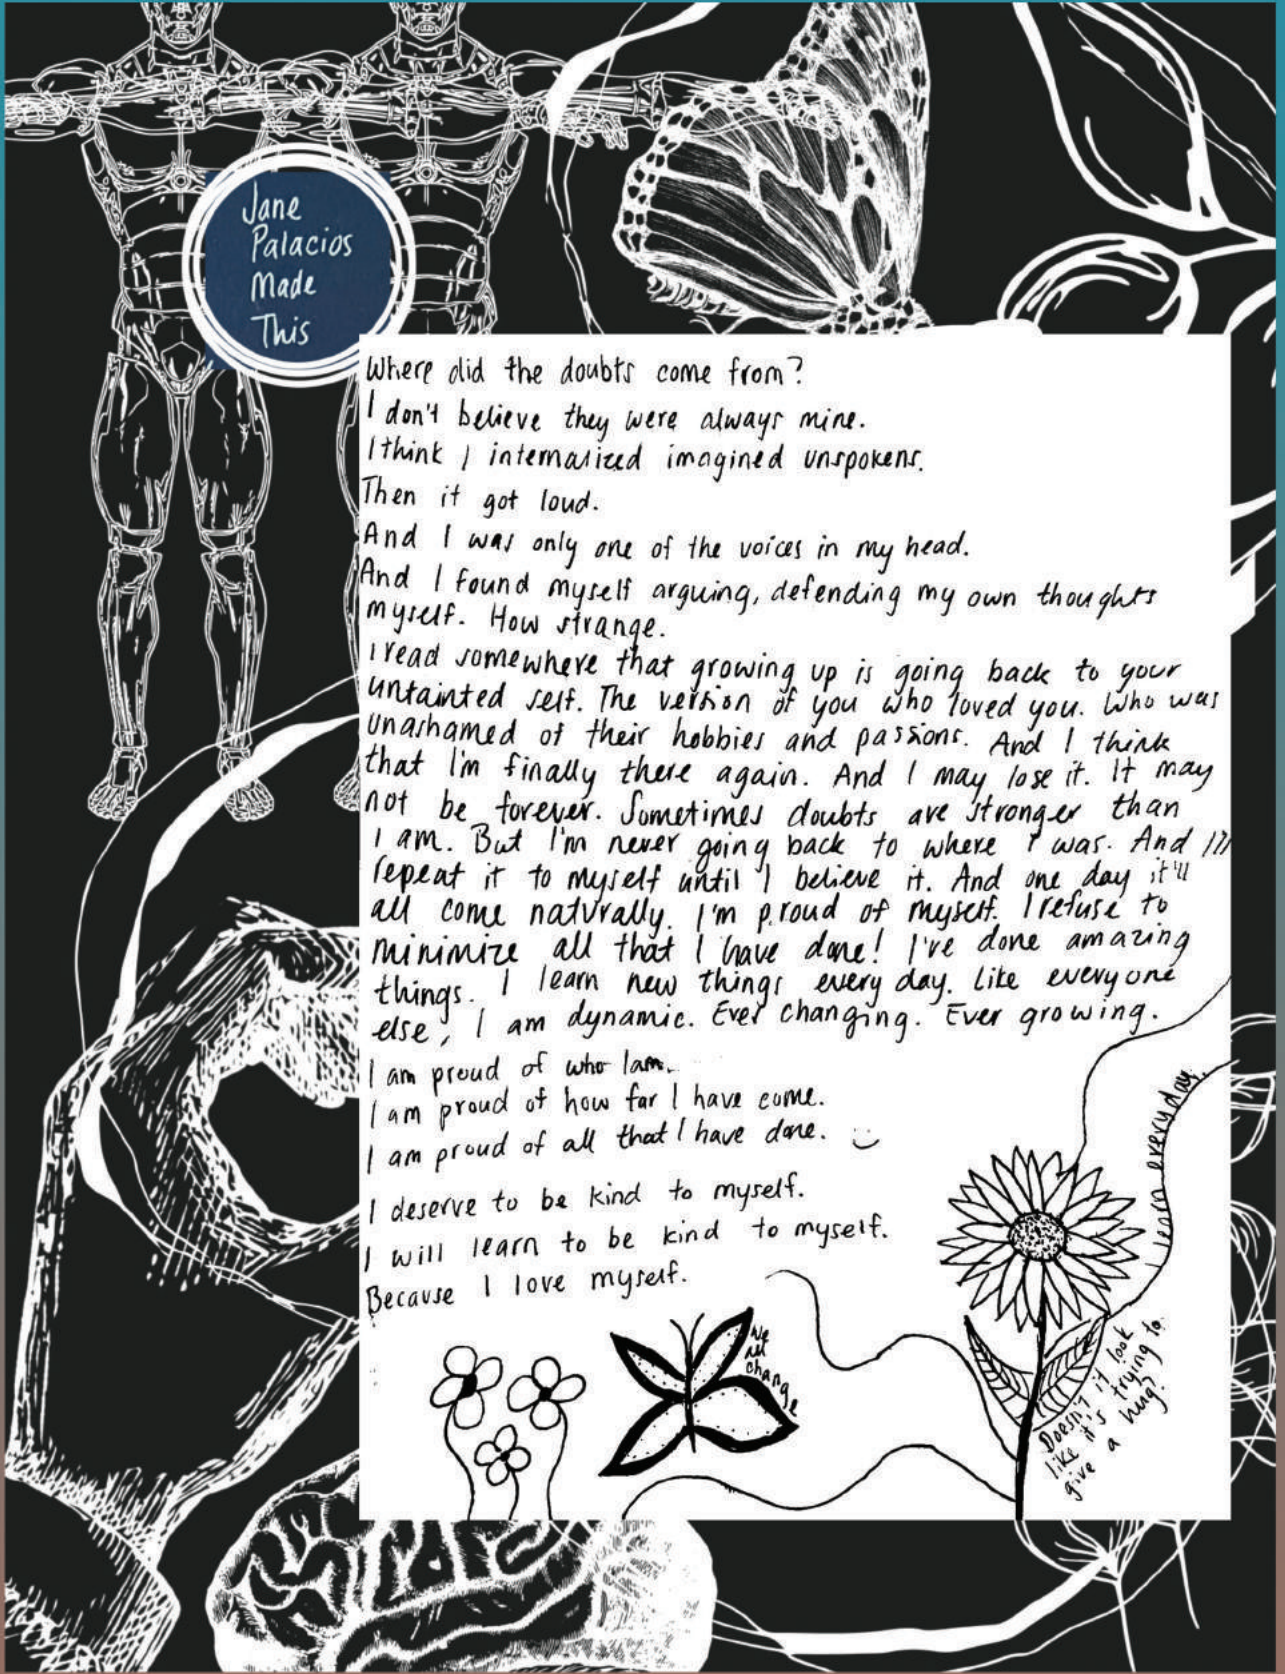 Jane
Palacios
Made
This
Where did the doubts come from?
I don't believe they were always mine.
I think I internalized imagined unspokens.
Then it got loud.
And I was only one of the voices in my head.
And I found myself arguing, defending my own thoughts
myself. How strange.
I read somewhere that growing up is going back to your
untainted self. The version of you who loved you. Who was
unashamed of their hobbies and passions. And I think
that I'm finally there again. And I may lose it. It may
not be forever. Sometimes doubts are stronger than
I am. But I'm never going back to where I was. And I'll
repeat it to myself until I believe it. And one day it'll
all come naturally. I'm proud of myself. I refuse to
minimize all that I have done! I've done amazing
things. I learn new things every day. Like everyone
else, I am dynamic. Ever changing. Ever growing.
I am proud of who I am.
I am proud of how far I have come.
I am proud of all that I have done.
I deserve to be kind to myself.
I will learn to be kind to myself.
Because I love myself.
learn everyday.
We
all
change
Doesn't it look
like it's trying to
give a hug?